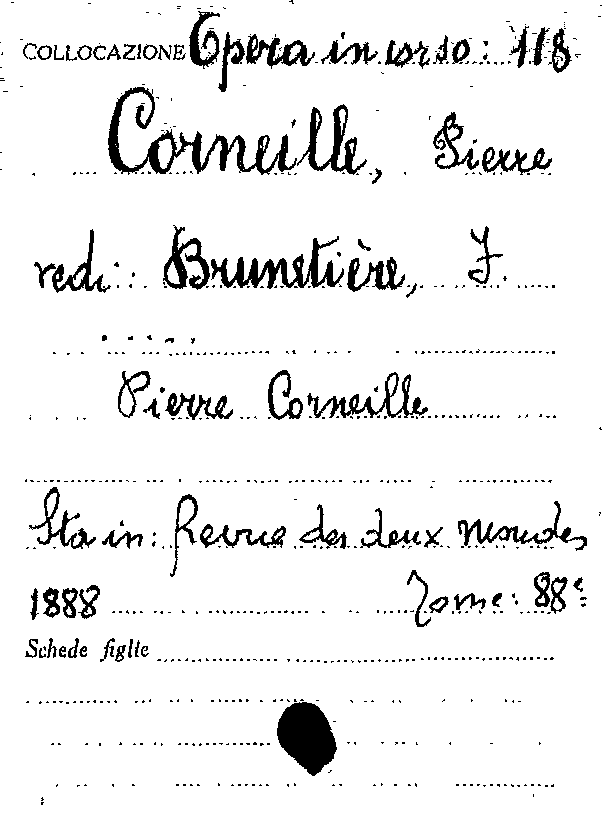 COLLOCAZIONE Opera in corso: 118
Corneille, Pierre
vedi: Brunetière, F.
.....
Pierre Corneille
Sta in: Revue des deux mondes
1888 Tome: 88e
Schede figlie